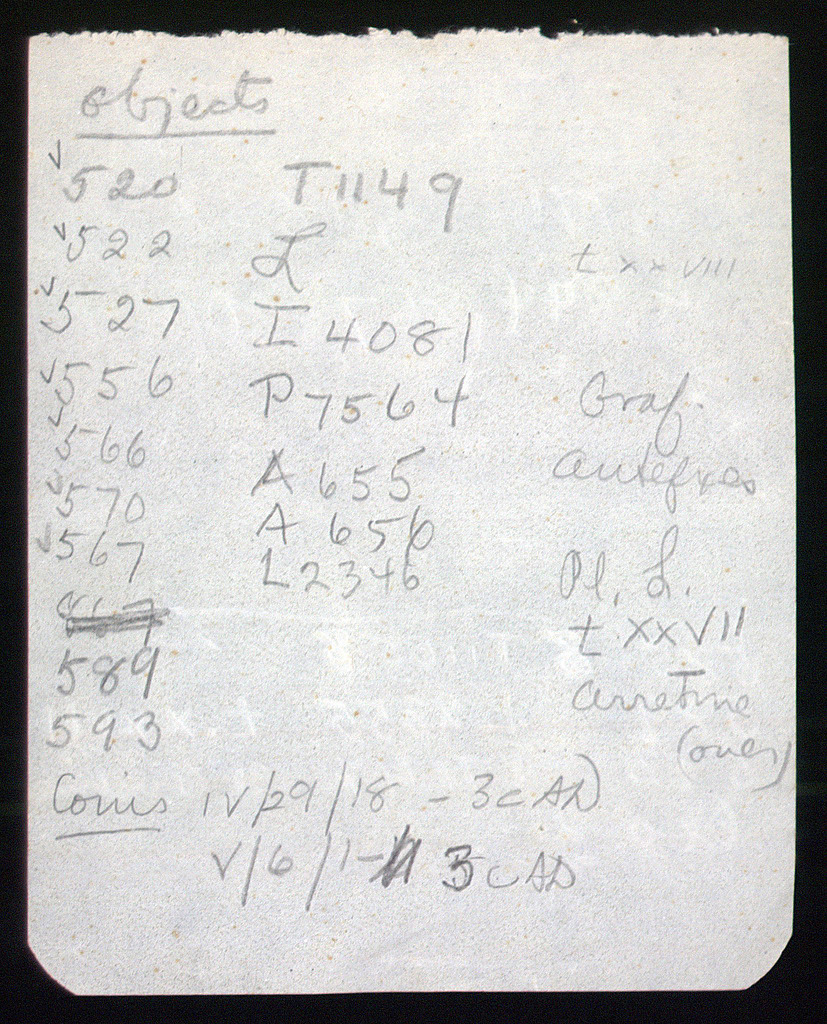 objects
✓520 T 1149
✓522 L t xxVIII
✓527 I 4081
✓556 P 7564 Graf.
✓566 A 655 antefixes
✓570 A 656
✓567 L 2346 Pl. L.
t. XXVII
589 arretine
593 (over)
Coins IV/29/18 - 3c AD
V/6/1- 3c AD